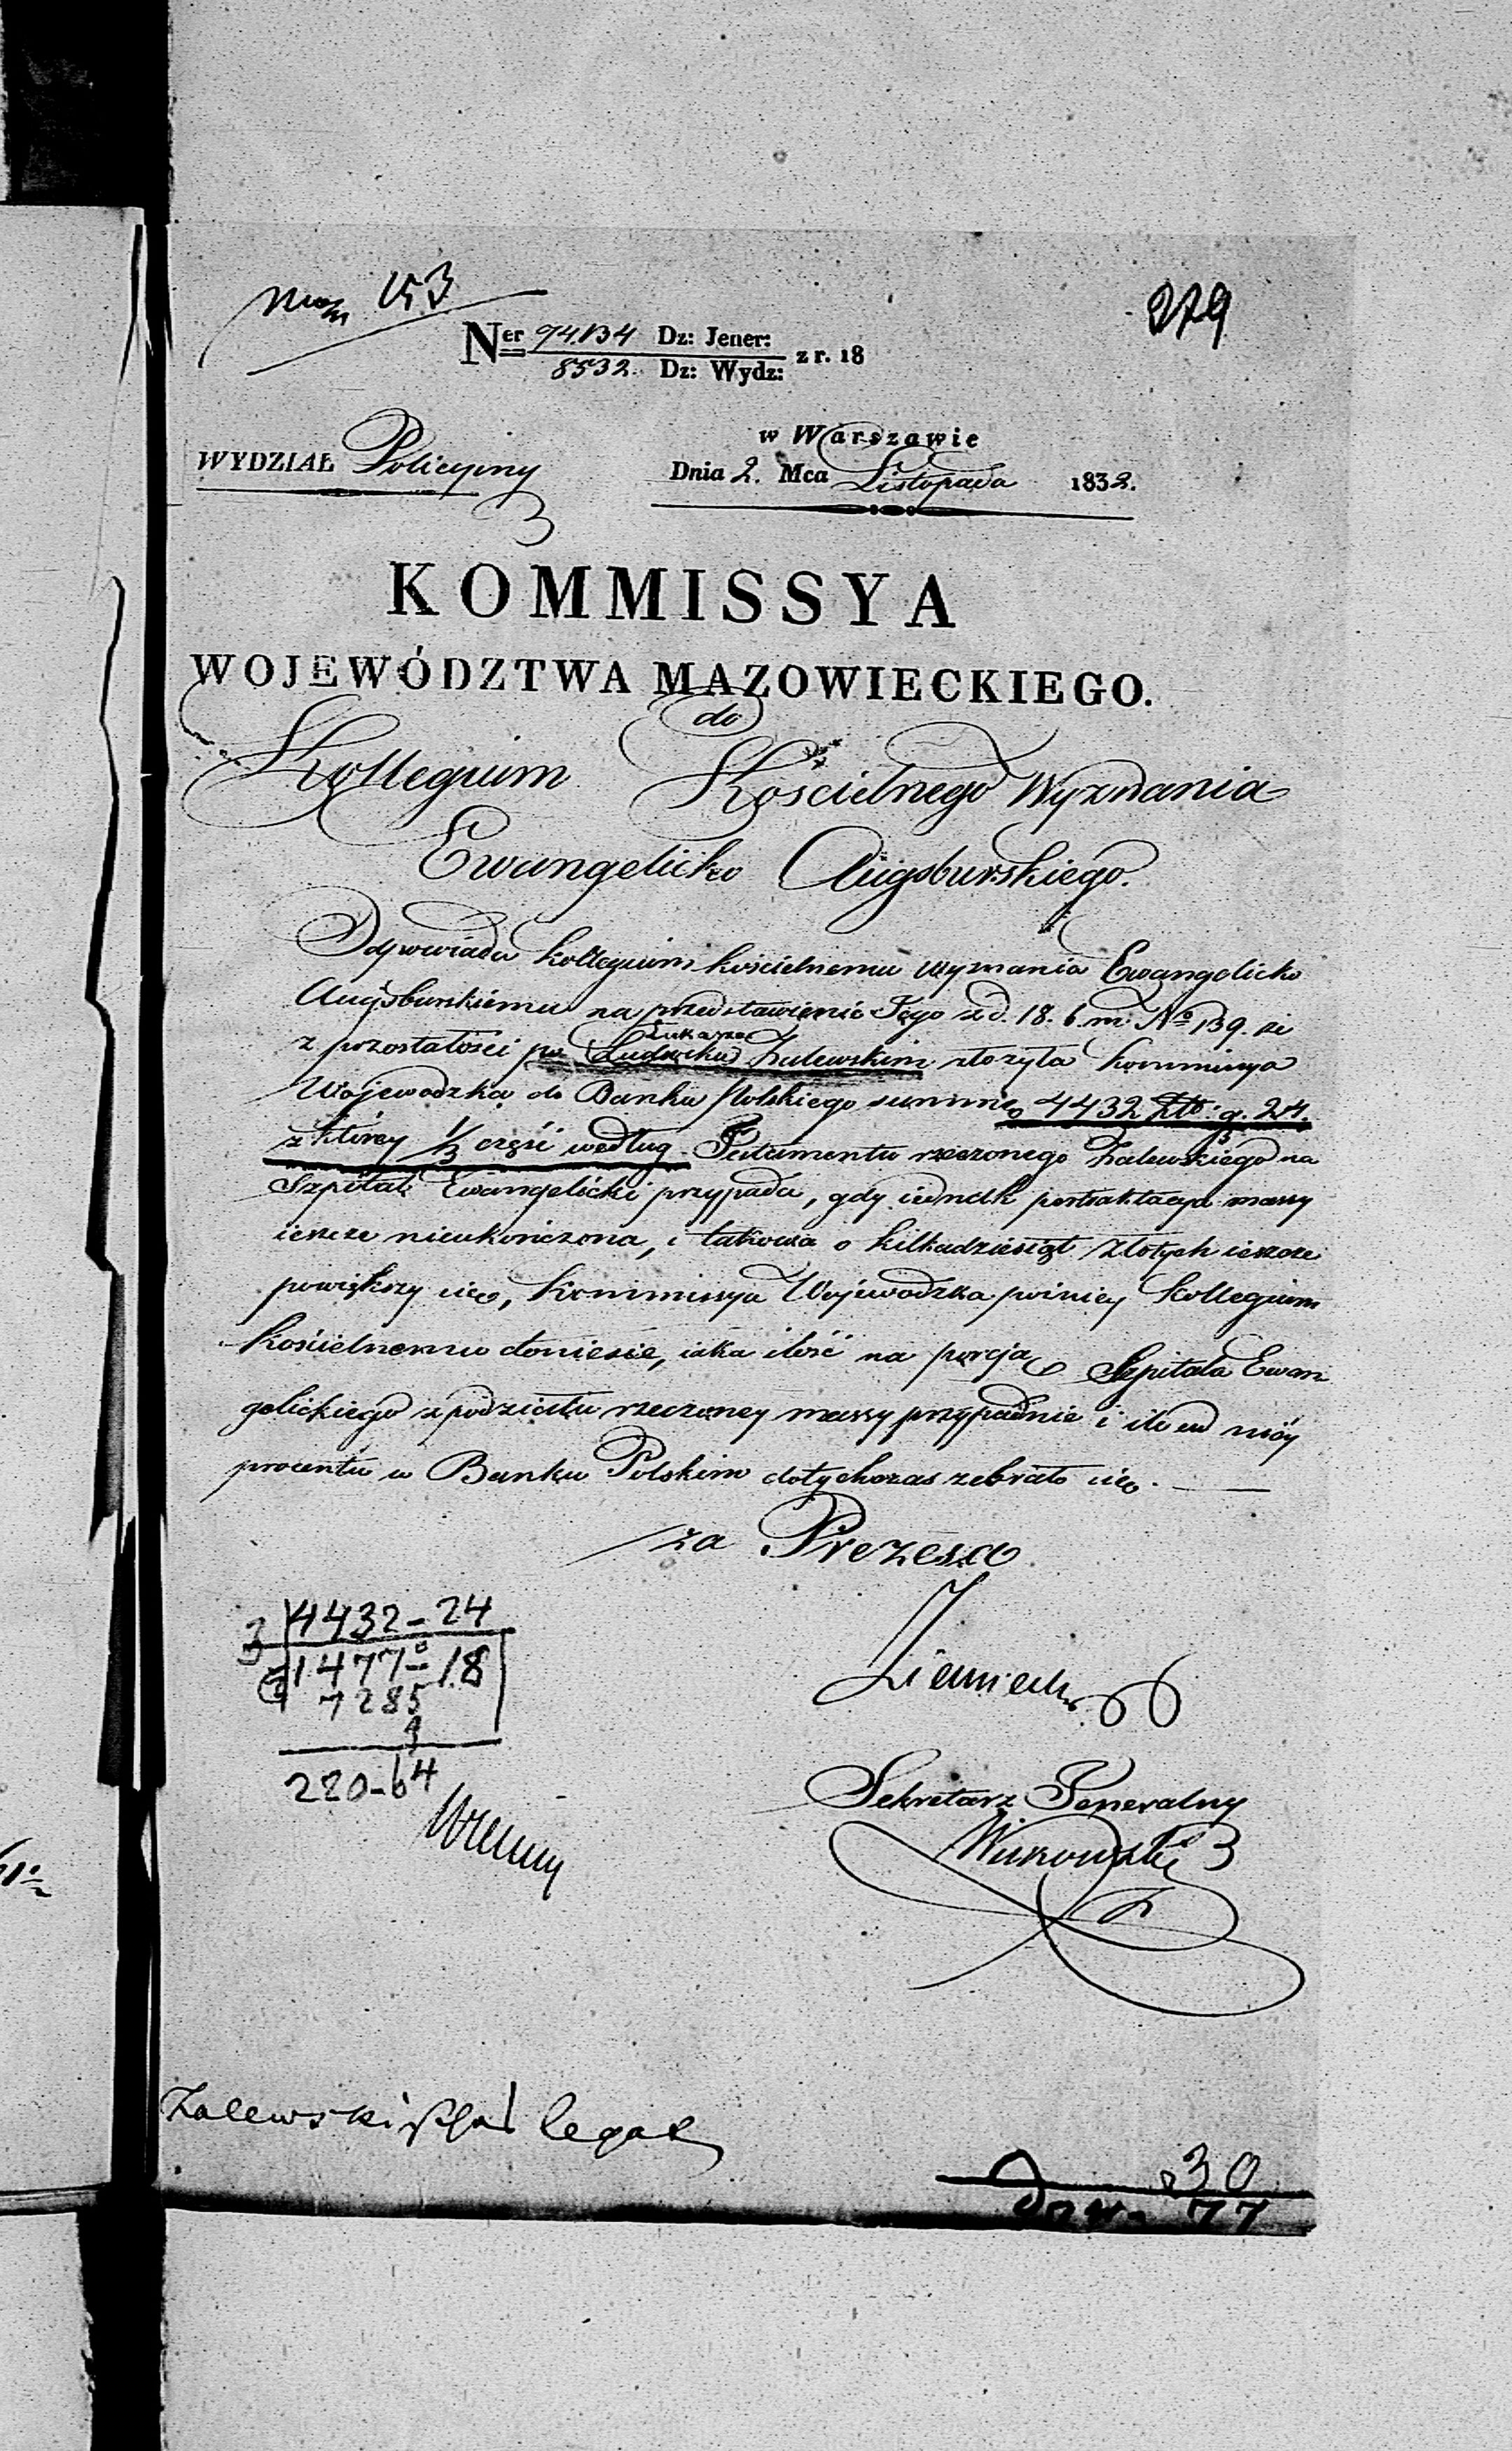 153
279
Ner 94134 Dz: Jener:
8532. Dz: Wydz: z r. 18
WYDZIAŁ Policyiny
w Warszawie
Dnia 2. Mca Listopada 1832.
KOMMISSYA
WOJEWÓDZTWA MAZOWIECKIEGO.
do
Kollegium Kościelnego Wyznania
Ewangelicko Augsburskiego.
Odpowiada Kollegium kościelnemu Wyznania Ewangelicko
Augsburskiemu na przedstawienie Jego z d. 18. b. m. No 139. że
Łukaszu
z pozostałości po Ludwiku Zalewskim złożyła Kommissya
Wojewodzka do Banku Polskiego summę 4432 Złt: g. 24.
z którey 1/3 część według Testamentu rzeczonego Zalewskiego na
Szpital Ewangelicki przypada, gdy iednak pertraktacya massy
ieszcze nieukończona, i takowa o kilkadziesiąt Złotych ieszcze
powiększy się, Kommissya Wojewodzka poźniey Kollegium
Kościelnemu doniesie, iaka ilość na porcją Szpitala Ewan
gelickiego z podziału rzeczoney massy przypadnie i ile od niéy
procentu w Banku Polskim dotychczas zebrało się.
za Prezesa
3 4432-24
1477-18
7285
220-64
Sekretarz Generalny
Zalewski legat
30
77